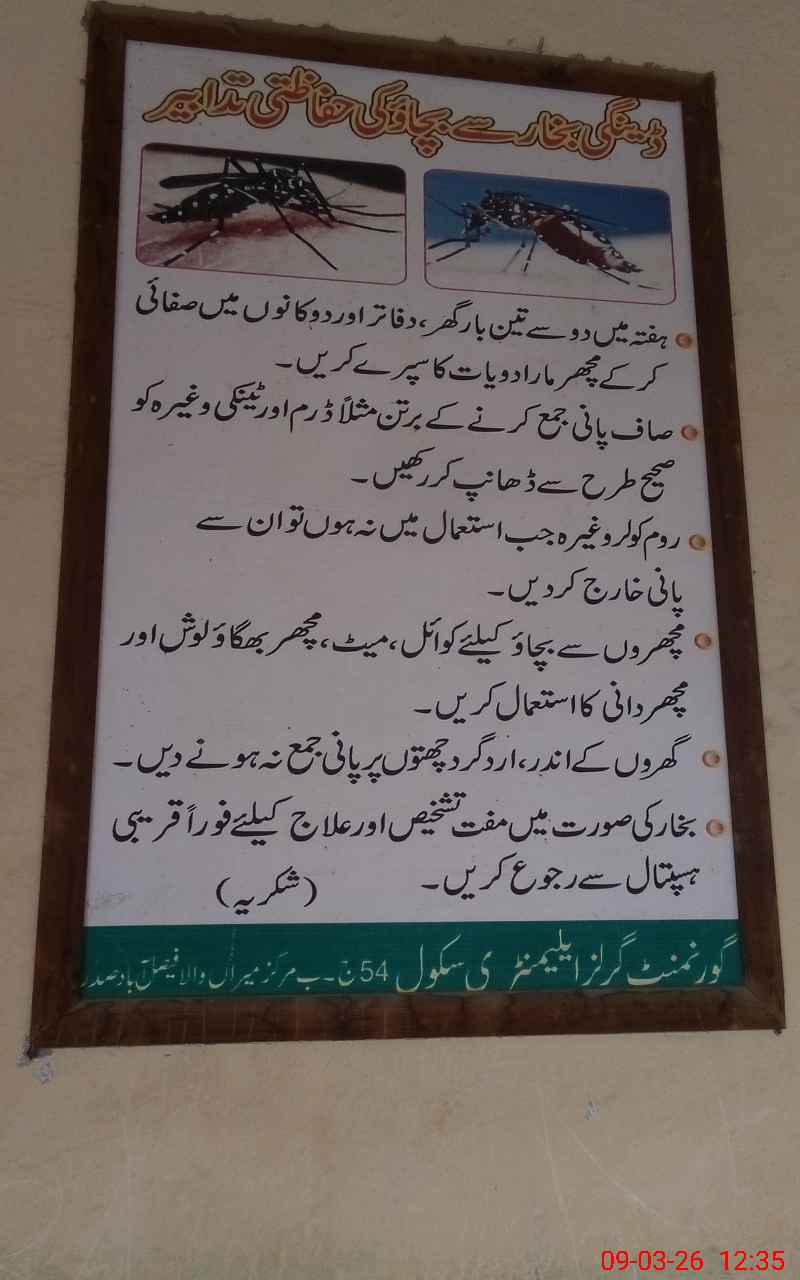 ڈینگی بخار سے بچاؤ کی حفاظتی تدابیر
ہفتہ میں دو سے تین بار گھر، دفاتر اور دوکانوں میں صفائی
کر کے مچھر مار ادویات کا سپرے کریں۔
صاف پانی جمع کرنے کے برتن مثلاً ڈرم اور ٹینکی وغیرہ کو
صحیح طرح سے ڈھانپ کر رکھیں۔
روم کولر وغیرہ جب استعمال میں نہ ہوں تو ان سے
پانی خارج کر دیں۔
مچھروں سے بچاؤ کیلئے کوائل، میٹ، مچھر بھگاؤ لوش اور
مچھر دانی کا استعمال کریں۔
گھروں کے اندر، ارد گرد چھتوں پر پانی جمع نہ ہونے دیں۔
بخار کی صورت میں مفت تشخیص اور علاج کیلئے فوراً قریبی
ہسپتال سے رجوع کریں۔ (شکریہ)
گورنمنٹ گرلز ایلیمنٹری سکول 54 ج۔ب مرکز میراں والا فیصل آباد صدر
09-03-26 12:35